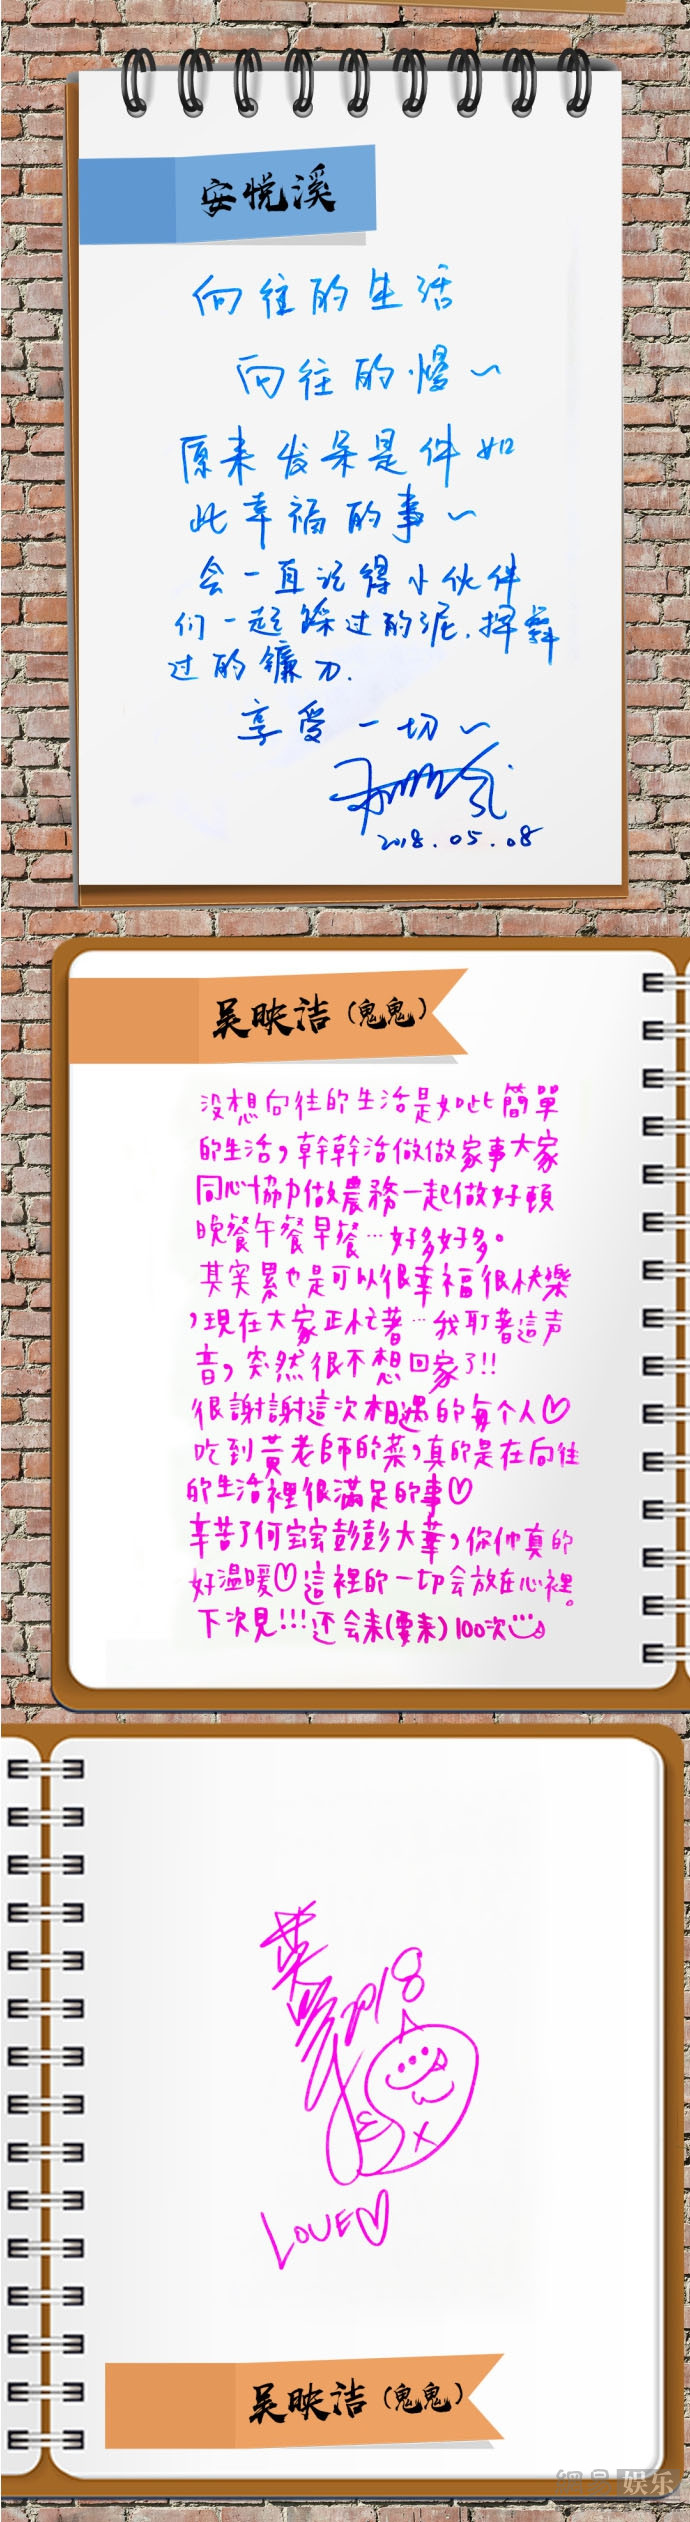 安悦溪
向往的生活
向往的慢~
原来发呆是件如
此幸福的事~
会一直记得小伙伴
们一起踩过的泥.挥舞
过的镰刀.
享受一切~
2018.05.08
吴映洁(鬼鬼)
没想向往的生活是如此簡單
的生活,幹幹活做做家事大家
同心協力做農務一起做好頓
晚餐午餐早餐…好多好多。
其实累也是可以很幸福很快樂
,現在大家正忙著…我听著這声
音,突然很不想回家了!!
很謝謝這次相遇的每个人♡
吃到黃老師的菜,真的是在向往
的生活裡很滿足的事♡
辛苦了何宝宝彭彭大華,你们真的
好温暖♡這裡的一切会放在心裡。
下次見!!!还会来(要来)100次
2018
LOVE♡
吴映洁(鬼鬼)
網易娱乐